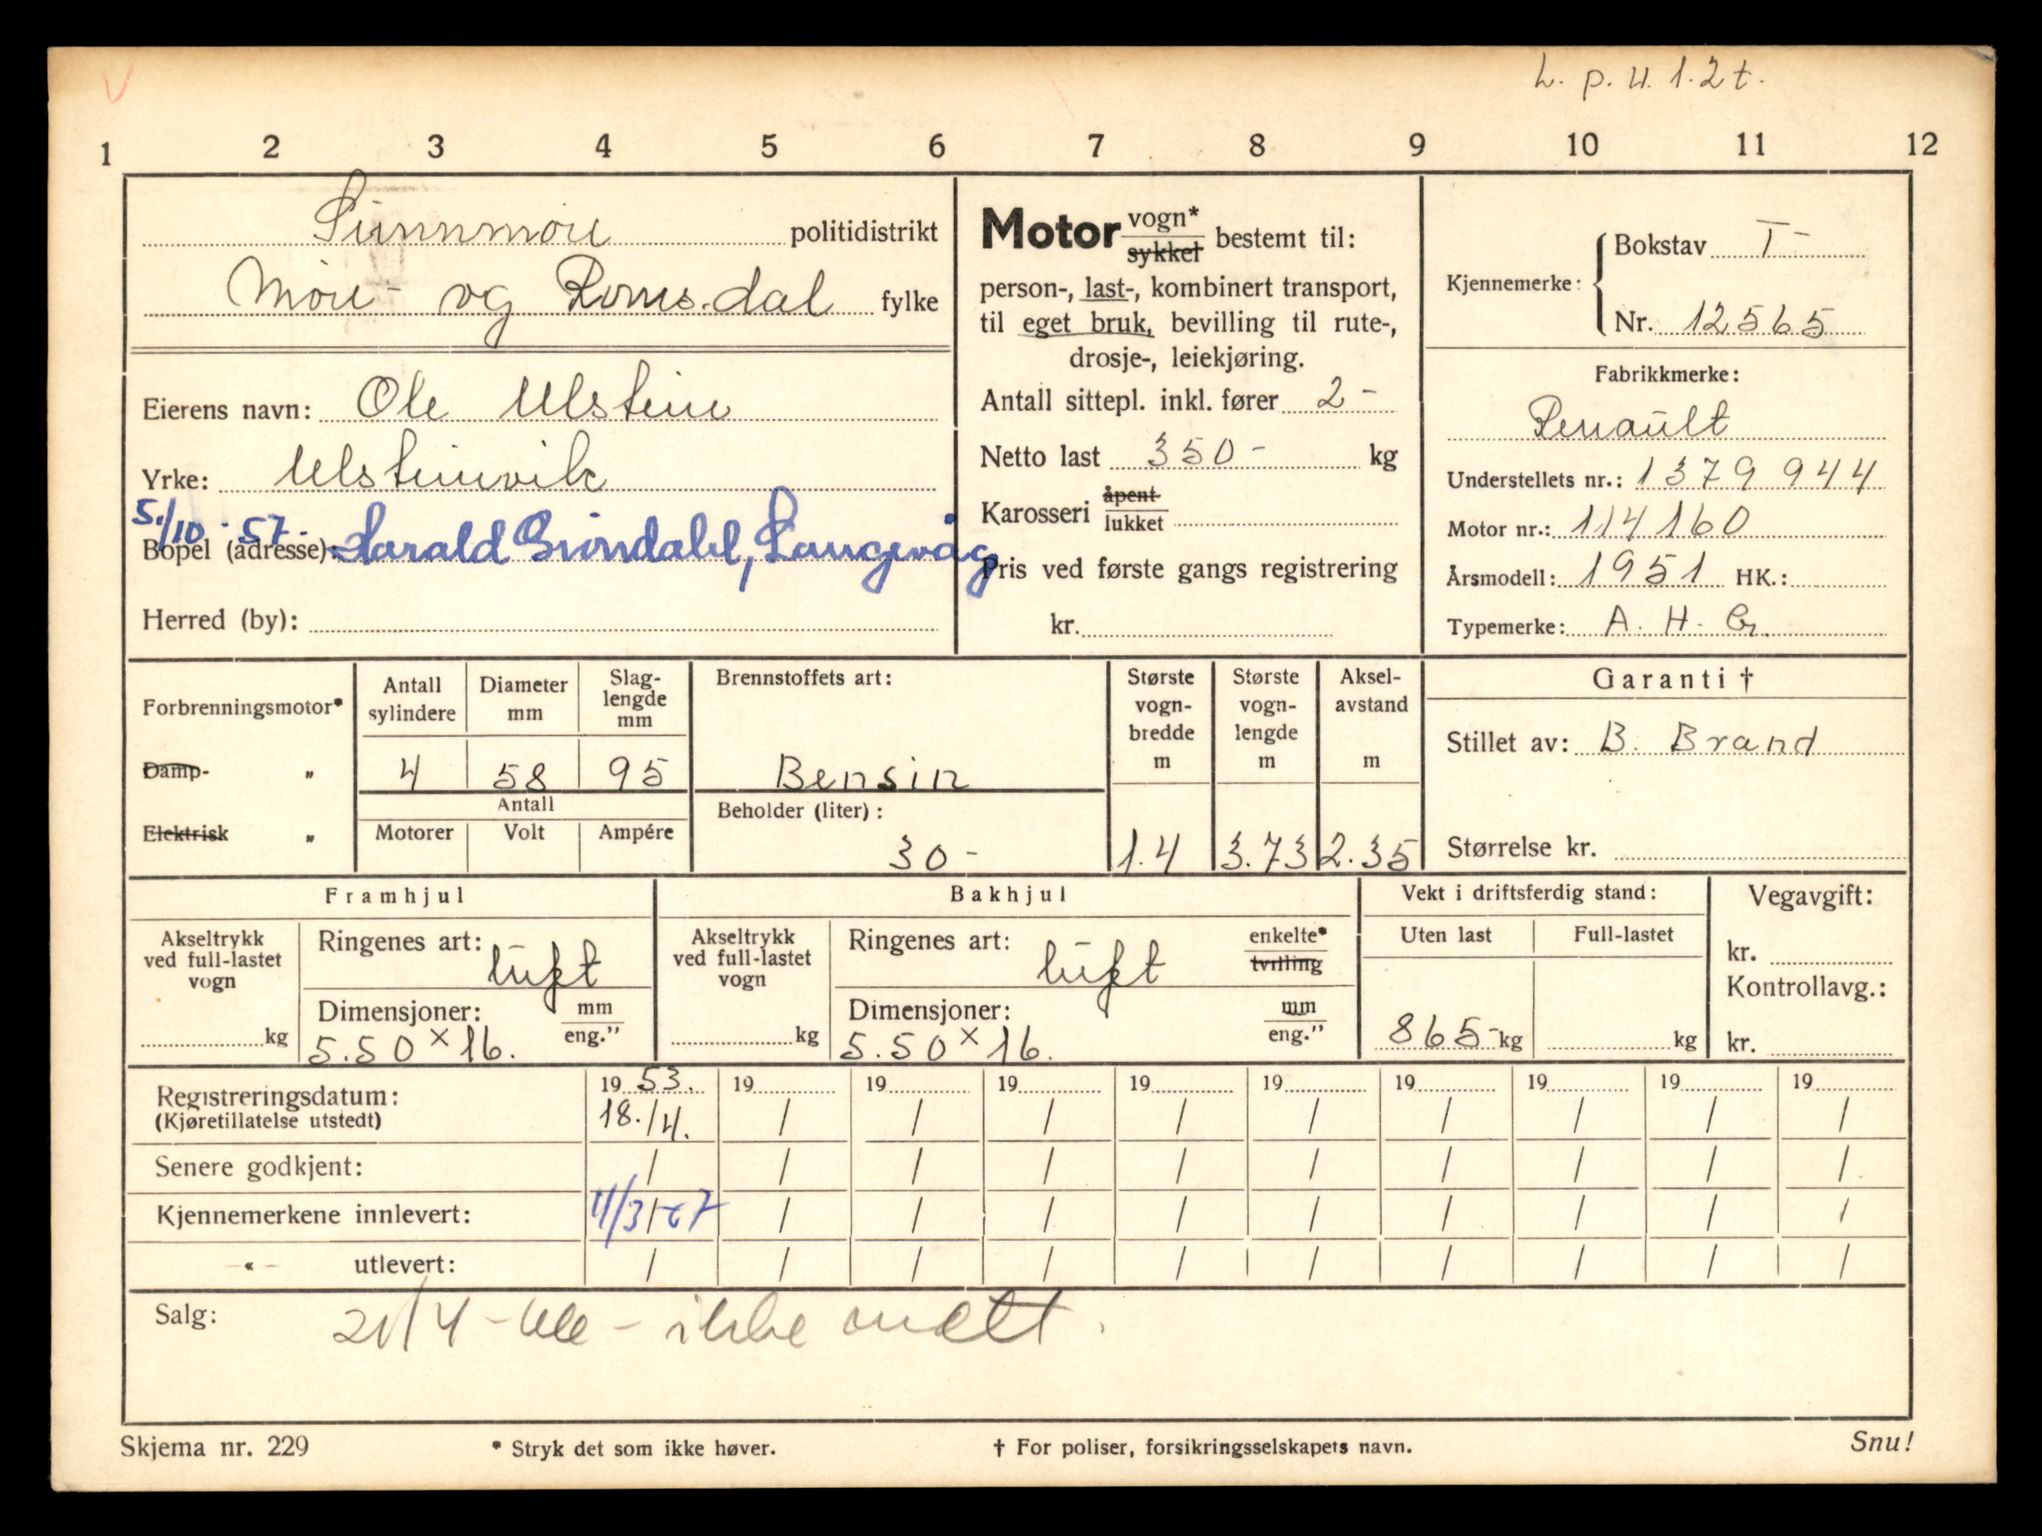 V
L. p. u. 1.2 t.
1 2 3 4 5 6 7 8 9 10 11 12
Sunnmøre politidistrikt
Møre- og Romsdal fylke
Eierens navn: Ole Ulstein
Yrke: Ulsteinvik
5./10 - 57 -
Bopel (adresse): Harald Grøndahl, Langevåg
Herred (by):
Motor vogn* / sykkel bestemt til:
person-, last-, kombinert transport,
til eget bruk, bevilling til rute-,
drosje-, leiekjøring.
Antall sittepl. inkl. fører 2 -
Netto last 350 - kg
Karosseri åpent / lukket
Pris ved første gangs registrering
kr.
Kjennemerke: Bokstav T -
Nr. 12565
Fabrikkmerke:
Renault
Understellets nr.: 1379 944
Motor nr.: 114160
Årsmodell: 1951 HK.:
Typemerke: A. H. G.
Forbrenningsmotor*
Damp- "
Elektrisk "
Antall sylindere Diameter mm Slag-lengde mm
4 58 95
Antall
Motorer Volt Ampére
Brennstoffets art:
Bensin
Beholder (liter):
30 -
Største vogn-bredde m
1.4
Største vogn-lengde m
3.73
Aksel-avstand m
2.35
Garanti †
Stillet av: B. Brand
Størrelse kr.
Framhjul
Akseltrykk
ved full-lastet
vogn
kg
Ringenes art: luft
Dimensjoner: mm / eng."
5.50 × 16.
Bakhjul
Akseltrykk
ved full-lastet
vogn
kg
Ringenes art: luft enkelte* / tvilling
Dimensjoner: mm / eng."
5.50 × 16.
Vekt i driftsferdig stand:
Uten last Full-lastet
865 - kg kg
Vegavgift:
kr.
Kontrollavg.:
kr.
Registreringsdatum: 19 53. 19 19 19 19 19 19 19 19 19
(Kjøretillatelse utstedt) 18./4. / / / / / / / / /
Senere godkjent: / / / / / / / / / /
Kjennemerkene innlevert: 4/3-67 / / / / / / / / /
-«- utlevert: / / / / / / / / / /
Salg: 21/4 - ikke
Skjema nr. 229 * Stryk det som ikke høver. † For poliser, forsikringsselskapets navn. Snu!